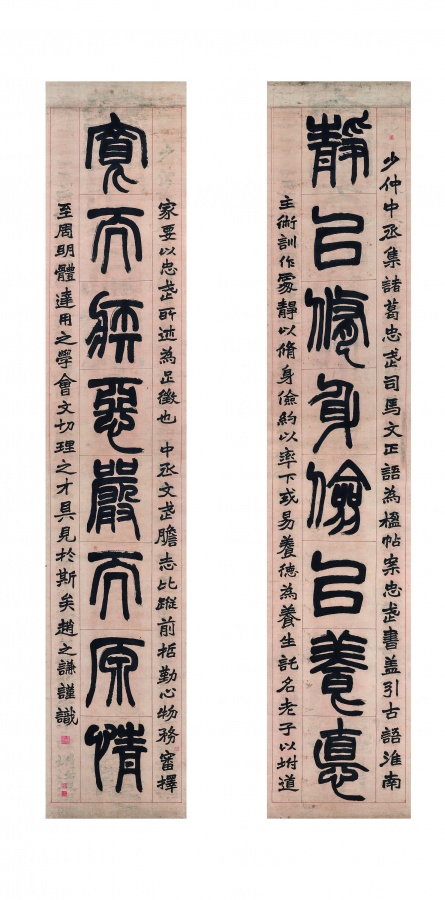 少仲中丞集諸葛忠武司馬文正語為楹帖案忠武書盖引古語淮南
靜㠯脩身儉㠯養悳
主術訓作處靜以脩身儉約以率下或易養德為養生託名老子以坿道
家要以忠武所述為足徵也 中丞文武膽志比蹤前悊勤心物務審擇
寬而疾惡嚴而原情
至周明體達用之學會文切理之才具見於斯矣趙之謙謹識